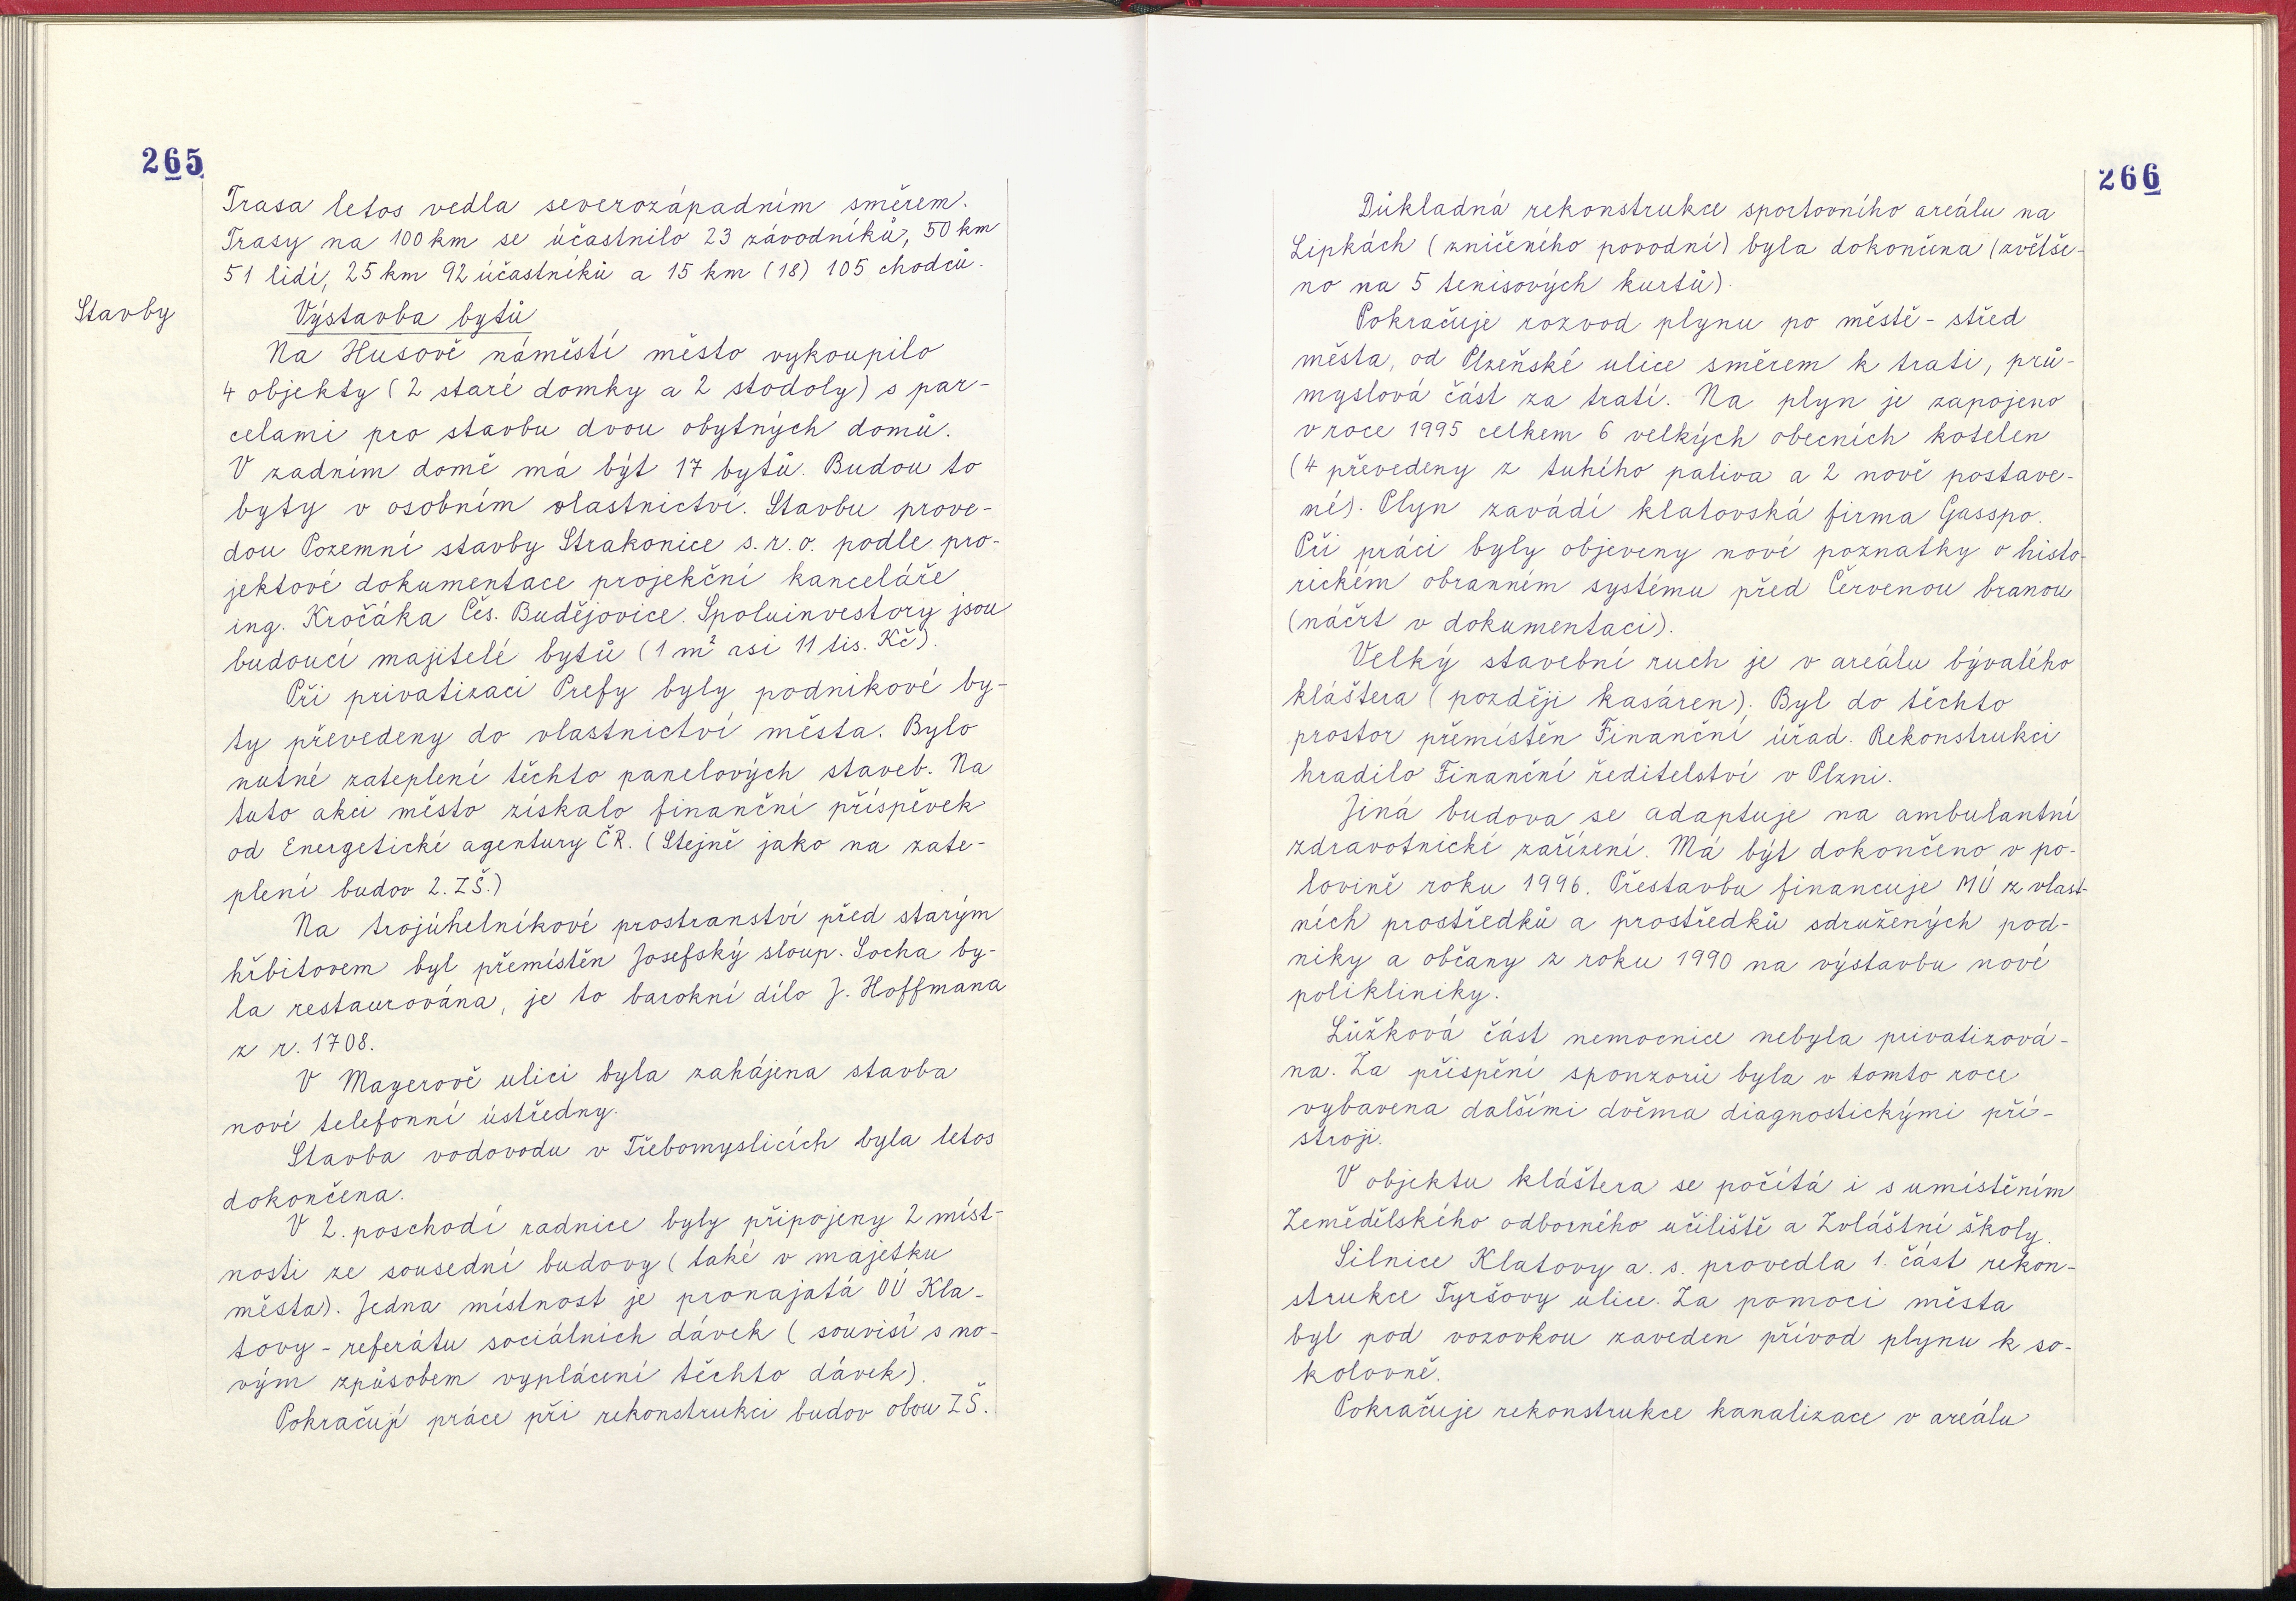 265
Trasa letos vedla severozápadním směrem.
Trasy na 100 km se účastnilo 23 závodníků, 50 km
51 lidí, 25 km 92 účastníků a 15 km (18) 105 chodců.
Stavby
Výstavba bytů
Na Husově náměstí město vykoupilo
4 objekty (2 staré domky a 2 stodoly) s par-
celami pro stavbu dvou obytných domů.
V zadním domě má být 17 bytů. Budou to
byty v osobním vlastnictví. Stavbu prove-
dou Pozemní stavby Strakonice s.r.o. podle pro-
jektové dokumentace projekční kanceláře
ing. Kročáka Čes. Budějovice. Spoluinvestory jsou
budoucí majitelé bytů (1 m² asi 11 tis. Kč).
Při privatizaci Prefy byly podnikové by-
ty převedeny do vlastnictví města. Bylo
nutné zateplení těchto panelových staveb. Na
tuto akci město získalo finanční příspěvek
od Energetické agentury ČR. (Stejně jako na zate-
plení budov 2. ZŠ.)
Na trojúhelníkové prostranství před starým
hřbitovem byl přemístěn Josefský sloup. Socha by-
la restaurována, je to barokní dílo J. Hoffmana
z r. 1708.
V Mayerově ulici byla zahájena stavba
nové telefonní ústředny.
Stavba vodovodu v Třebomyslicích byla letos
dokončena.
V 2. poschodí radnice byly připojeny 2 míst-
nosti ze sousední budovy (také v majetku
města). Jedna místnost je pronajatá OÚ Kla-
tovy - referátu sociálních dávek (souvisí s no-
vým způsobem vyplácení těchto dávek).
Pokračují práce při rekonstrukci budov obou ZŠ.
266
Důkladná rekonstrukce sportovního areálu na
Lipkách (zničeného povodní) byla dokončena (zvětše-
no na 5 tenisových kurtů).
Pokračuje rozvod plynu po městě - střed
města, od Plzeňské ulice směrem k trati, prů-
myslová část za tratí. Na plyn je zapojeno
v roce 1995 celkem 6 velkých obecních kotelen
(4 převedeny z tuhého paliva a 2 nově postave-
né). Plyn zavádí klatovská firma Gasspo.
Při práci byly objeveny nové poznatky o histo-
rickém obranném systému před Červenou branou
(náčrt v dokumentaci).
Velký stavební ruch je v areálu bývalého
kláštera (později kasáren). Byl do těchto
prostor přemístěn Finanční úřad. Rekonstrukci
hradilo Finanční ředitelství v Plzni.
Jiná budova se adaptuje na ambulantní
zdravotnické zařízení. Má být dokončeno v po-
lovině roku 1996. Přestavbu financuje MÚ z vlast-
ních prostředků a prostředků sdružených pod-
niky a občany z roku 1990 na výstavbu nové
polikliniky.
Lůžková část nemocnice nebyla privatizová-
na. Za přispění sponzorů byla v tomto roce
vybavena dalšími dvěma diagnostickými pří-
stroji.
V objektu kláštera se počítá i s umístěním
Zemědělského odborného učiliště a Zvláštní školy.
Silnice Klatovy a. s. provedla 1. část rekon-
strukce Tyršovy ulice. Za pomoci města
byl pod vozovkou zaveden přívod plynu k so-
kolovně.
Pokračuje rekonstrukce kanalizace v areálu